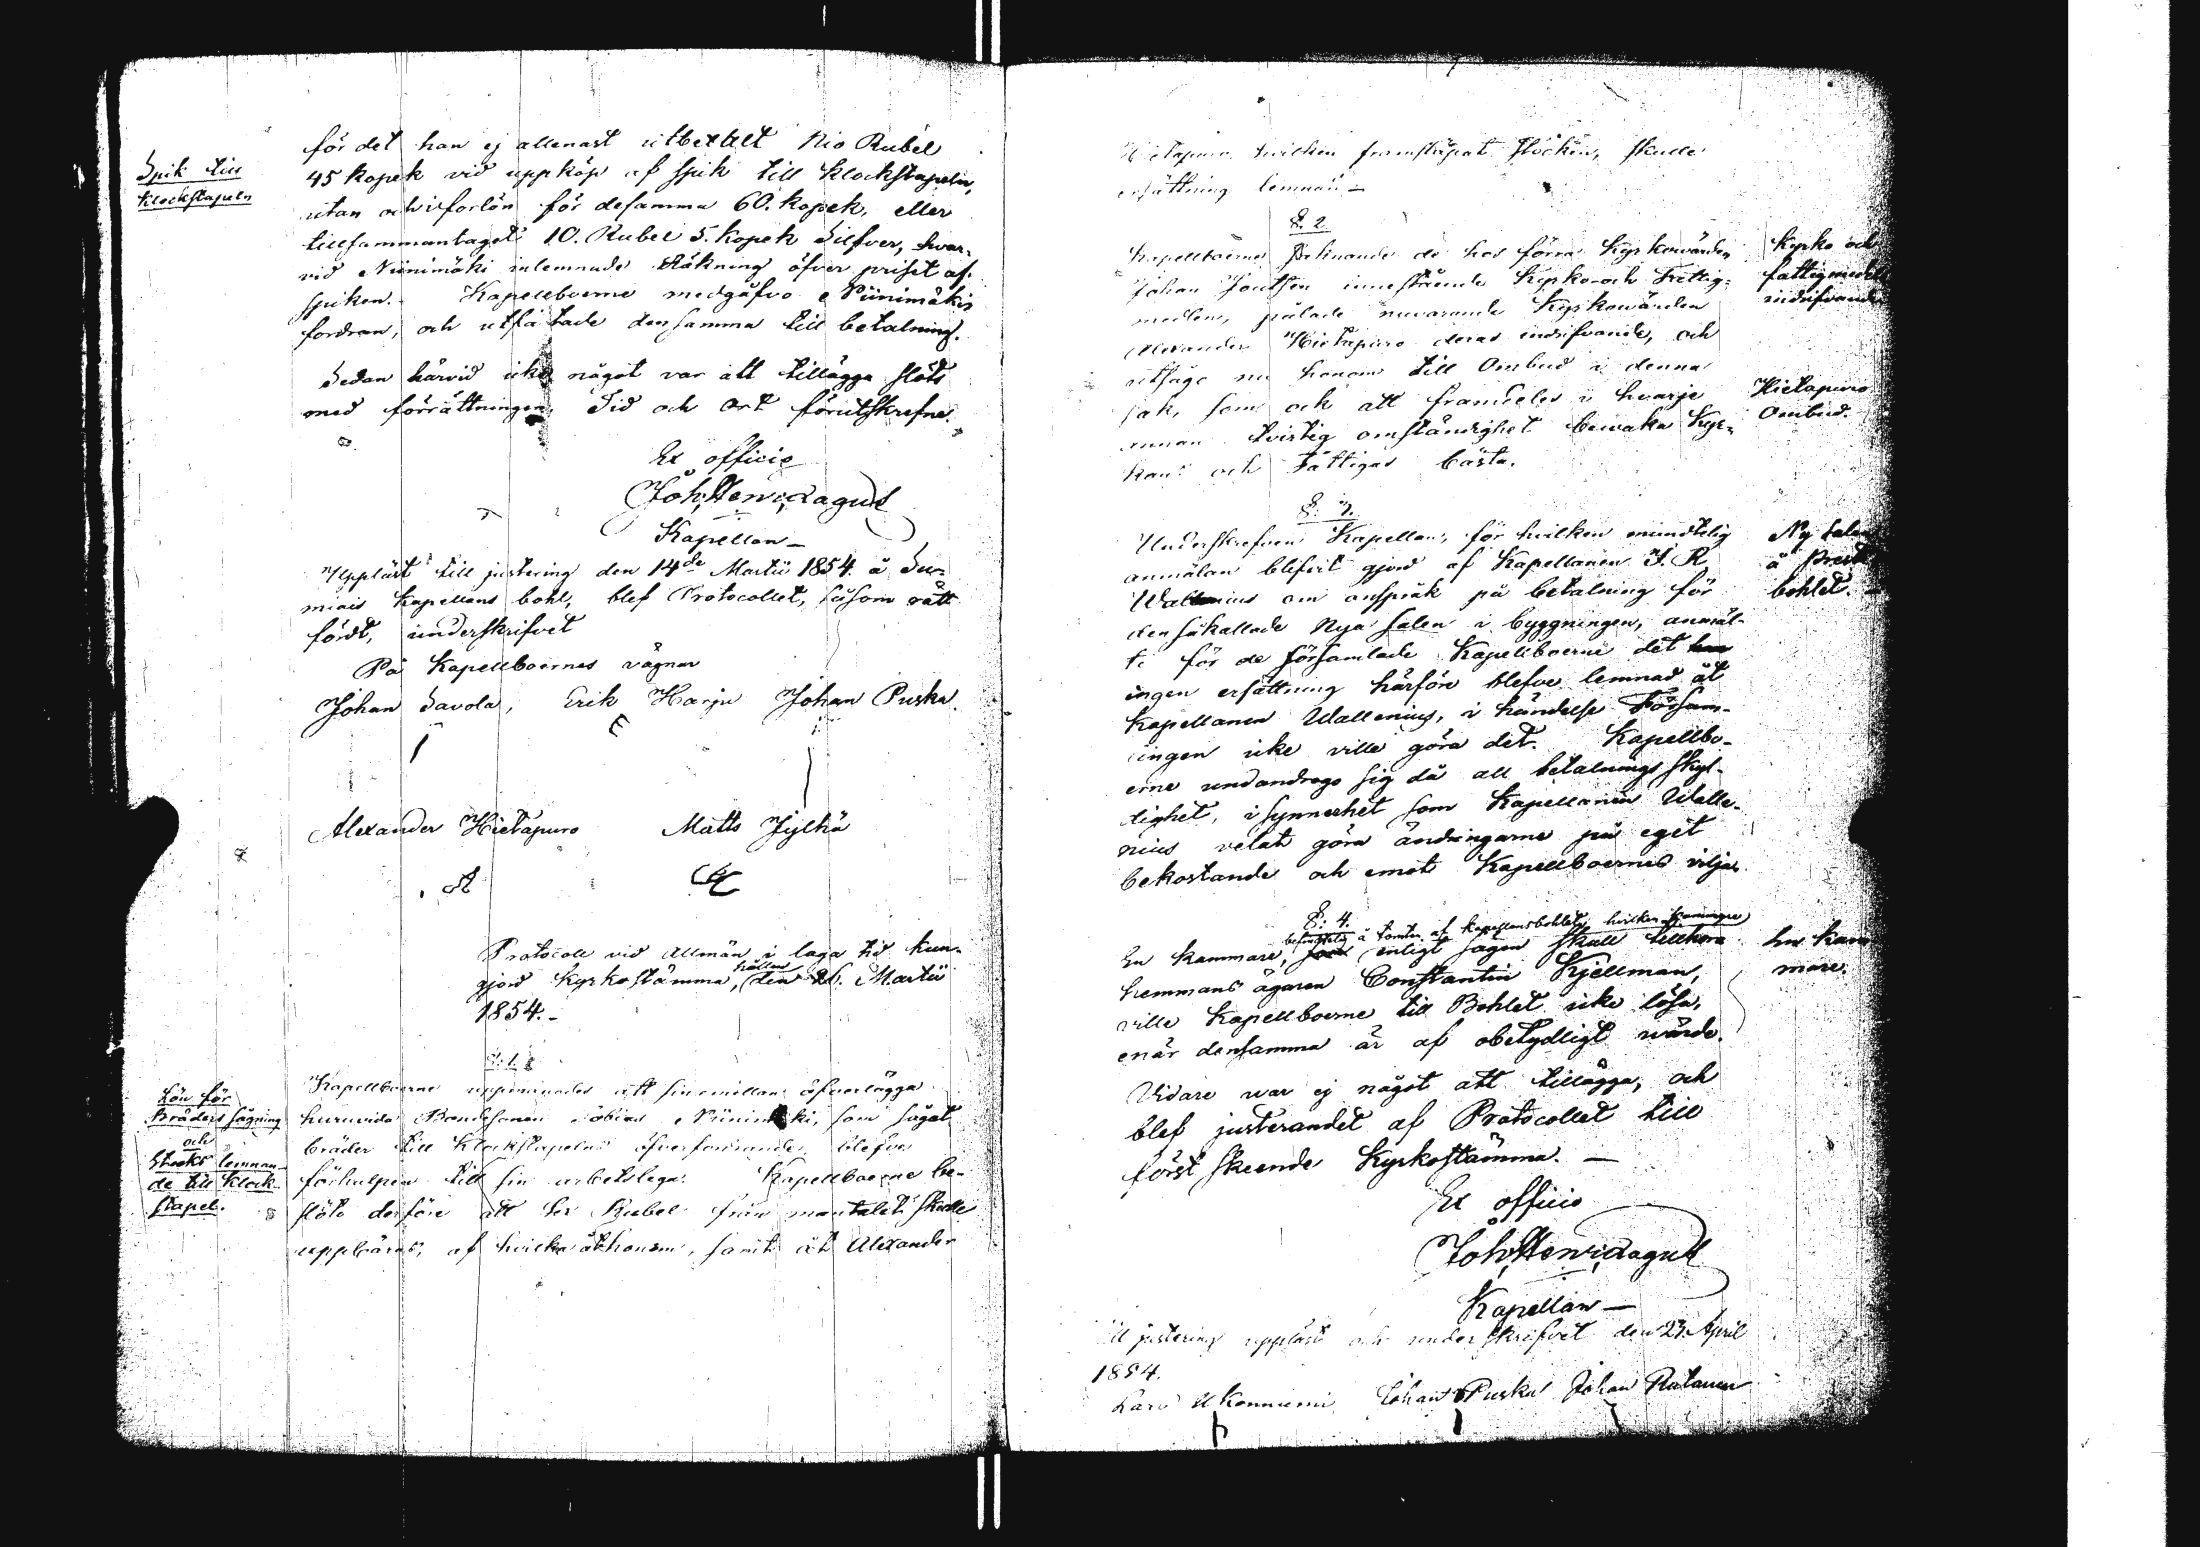 Spik till
Klockstapeln
för det han ej allenast utbetalt Nio Rubel
45 kopek vid uppköp af spik till Klockstapeln,
utan och forlön för desamma 60. kopek, eller
tillsammantaget 10. Rubel 5. kopek Silfver, hvar-
vid Niinimäki inlemnade Räkning öfver priset af
spiken. Kapellboerne medgåfvo Niinimäkis
fordran, och utsådade densamma till betalning.
Sedan härvid icke något var att tillägga slöts
med förrättningen. Tid och Ort förutskrefne.
Ex officio
Joh. Henr.
Kapellan
Uppläst till justering den 14de Martii 1854 å
Kapellans bohl, blef Protocollet, såsom rätt
fördt, underskrifvet
På Kapellboernes vägnar
Johan Savola, Erik Harju Johan Puska.
Alexander Hietapuro Matts Jylhä
Protocoll vid Allmän i laga tid kun-
gjord Kyrkostämma, hållen den 26. Martii
1854.-
§. 1.
Lön för
Bräders sågning
och
Stockr lemnan-
de till Klock-
stapel.
Kapellboerne uppmanades att sinemellan öfverlägga
huruvida Bondesonen Tobias Niinimäki, som sågat
bräder till Klockstapelns öfverfodrande, blefve
förhulpen till sin arbetslega. Kapellboerne be-
slöto derföre att Rubel från mantalet skulle
uppbäras, af hvilka åt honom, samt åt Alexander
Hietapuro hvilken framsläpat stocken, skulle
ersättning lemnas –
§. 2.
Kapellboerne de hos förra Kyrkowärden
Johan innestående Kyrko- och Fattig-
medlen, nuvarande Kyrkowärden
Alexander Hietapuro deras indrifvande, och
utsågo nu honom till Ombud i denna
sak, som och att framdeles i hvarje
annan tvistig omständighet bevaka Kyr-
kans och Fattigas bästa.
Kyrko och
fattigmedels
indrifvande
Hietapuro
Ombud.
§. 3.
Underskrefven Kapellan, för hvilken mundtelig
anmälan blifvit gjord af Kapellanen J. R.
Wallenius om anspråk på betalning för
den såkallade Nya salen i byggningen, anmäl-
te för de församlade Kapellboerne det
ingen ersättning härföre blefve lemnad åt
Kapellanen Wallenius, i händelse Försam-
lingen icke ville göra det. Kapellbo-
erne undandrogo sig då all betalnings skyl-
dighet, i synnerhet som Kapellanen Walle-
nius velat göra ändringarne på eget
bekostande och emot Kapellboernes vilja.
Ny salen
å Prest
bohlet.
§. 4.
befintlig å tomten af Kapellansbohlet, hvilken
En kammare, enligt sägen skall tillhöra
hemmans ägaren Constantin Kjellman,
ville Kapellboerne till Bohlet icke lösa,
enär densamma är af obetydligt wärde.
En kam
mare.
Vidare war ej något att tillägga, och
blef justerandet af Protocollet till
först skeende Kyrkostämma. –
Ex officio
Joh. Henr.
Kapellan –
Till justering uppläst och underskrifvit den 23. April
1854.
Lars Johan Puska Johan